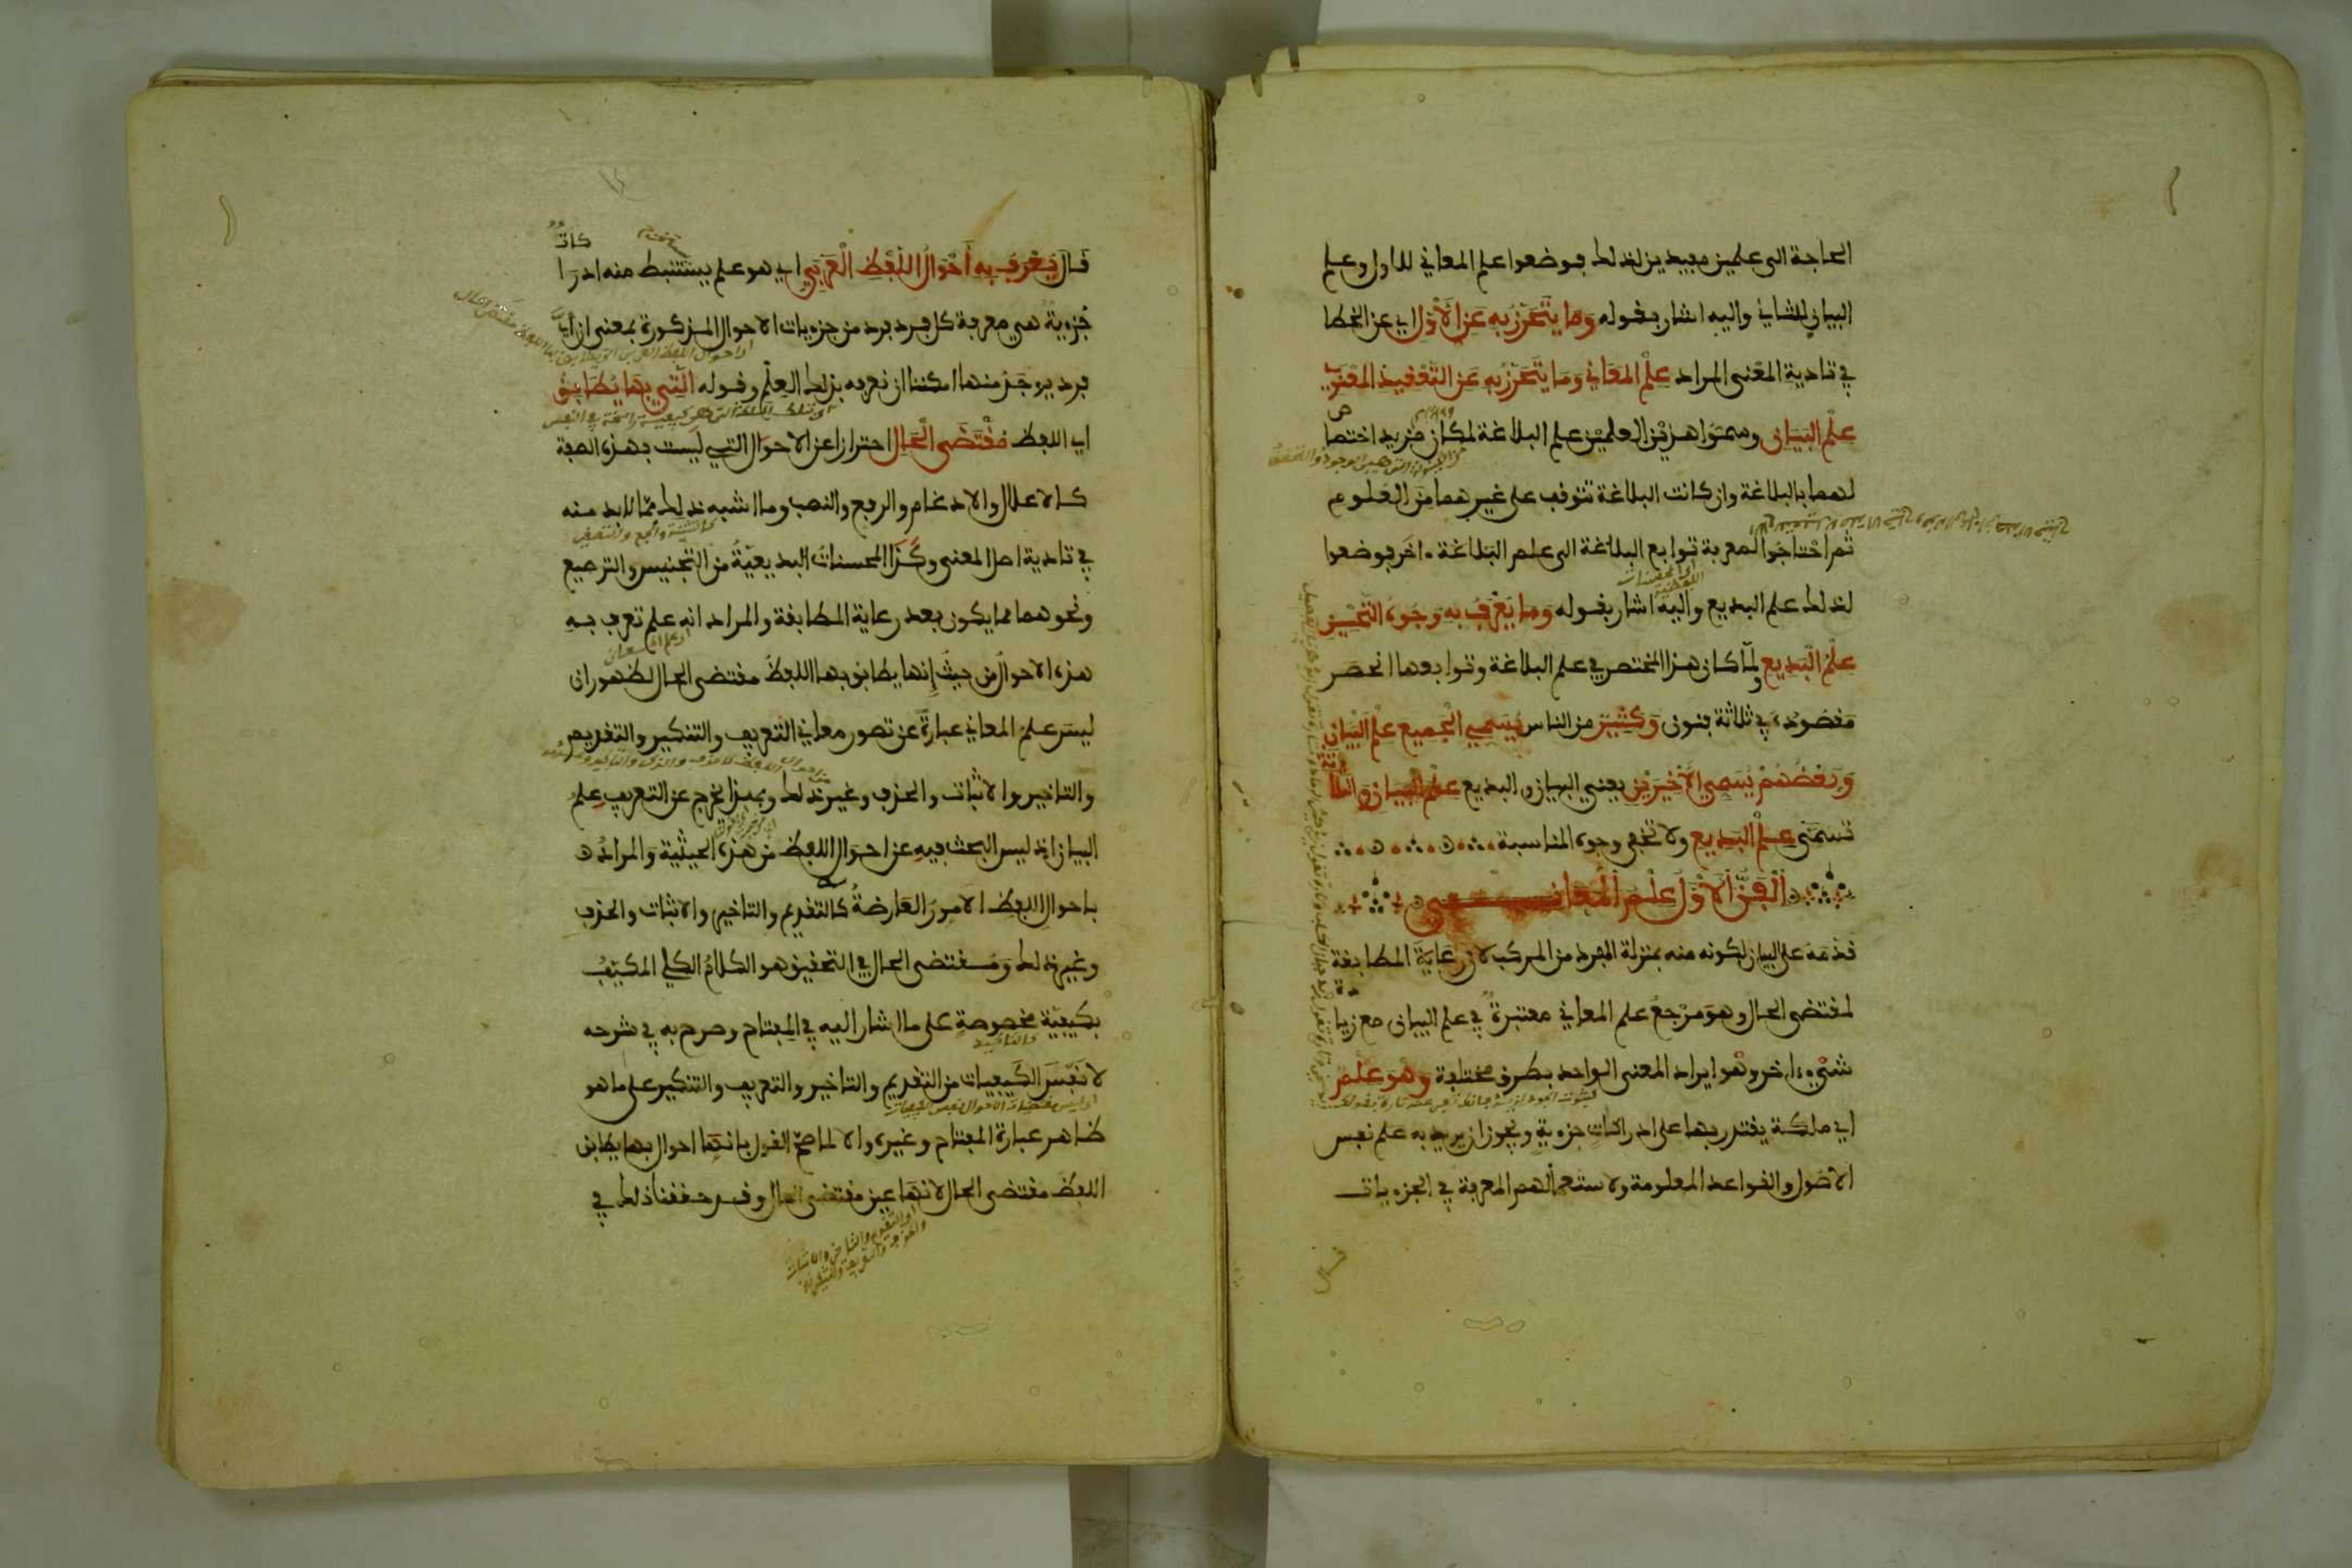 الحاجة الى علمين مفيدين لذلك فوضعوا علم المعاني للاول وعلم
البيان للثاني واليه اشار بقوله وما يتحرز به عن الاول اي عن الخطا
في تادية المعنى المراد علم المعاني وما يتحرز به عن التعقيد المعنوي
علم البيان وسموا هذين العلمين علم البلاغة لمكان مزيد اختصا
ص
لهما بالبلاغة وان كانت البلاغة تتوقف على غيرهما من العلوم
ثم احتاجوا لمعرفة توابع البلاغة الى علم البلاغة ءاخر فوضعوا
لذلك علم البديع واليه اشار بقوله وما يعرف به وجوه التحسين
علم البديع ولما كان هذا المختصر في علم البلاغة وتوابعها انحصر
مقصوده في ثلاثة فنون وكثير من الناس يسمي الجميع علم البيان
وبعضهم يسمي الاخيرين يعني البيان والبديع علم البيان والثلا
ثة
تسمى علم البديع ولا تخفى وجوه المناسبة
الفن الاول علم المعاني
قدمه على البيان لكونه منه بمنزلة المفرد من المركب لان رعاية المطابقة
لمقتضى الحال وهو مرجع علم المعاني معتبرة في علم البيان مع زيا
دة
شيء ءاخر وهو ايراد المعنى الواحد بطرق مختلفة وهو علم
اي ملكة يقتدر بها على ادراكات جزوية ويجوز ان يريد به علم نفس
الاصول والقواعد المعلومة ولاستعمالهم المعرفة في الجزويات
قال
قال يعرف به احوال اللفظ العربي اي هو علم يستنبط منه ادرا
كات
جزوية هي معرفة كل فرد فرد من جزويات الاحوال المذكورة بمعنى ان اي
فرد يوجد منها امكننا ان نعرفه بذلك العلم وقوله التي بها يطابق
اي اللفظ مقتضى الحال احترازا عن الاحوال التي ليست بهذه الصفة
كالاعلال والادغام والرفع والنصب وما اشبه ذلك مما لا بد منه
في تادية اصل المعنى وكذا المحسنات البديعية من التجنيس والترصيع
ونحوهما مما يكون بعد رعاية المطابقة والمراد انه علم تعرف به
هذه الاحوال من حيث إنها يطابق بها اللفظ مقتضى الحال لظهور ان
ليس علم المعاني عبارة عن تصور معاني التعريف والتنكير والتقديم
والتاخير والاثبات والحذف وغير ذلك وبهذا يخرج عن التعريف علم
البيان اذ ليس البحث فيه عن احوال اللفظ من هذه الحيثية والمراد
باحوال اللفظ الامور العارضة له كالتقديم والتاخير والاثبات والحذف
وغير ذلك ومقتضى الحال في التحقيق هو الكلام الكلي المكيف
بكيفية مخصوصة على ما اشار اليه في المفتاح وصرح به في شرحه
لا نفس الكيفيات من التقديم والتاخير والتعريف والتنكير على ما هو
ظاهر عبارة المفتاح وغيره والا لما صح القول بانها احوال بها يطابق
اللفظ مقتضى الحال لانها عين مقتضى الحال وقد حققنا ذلك في